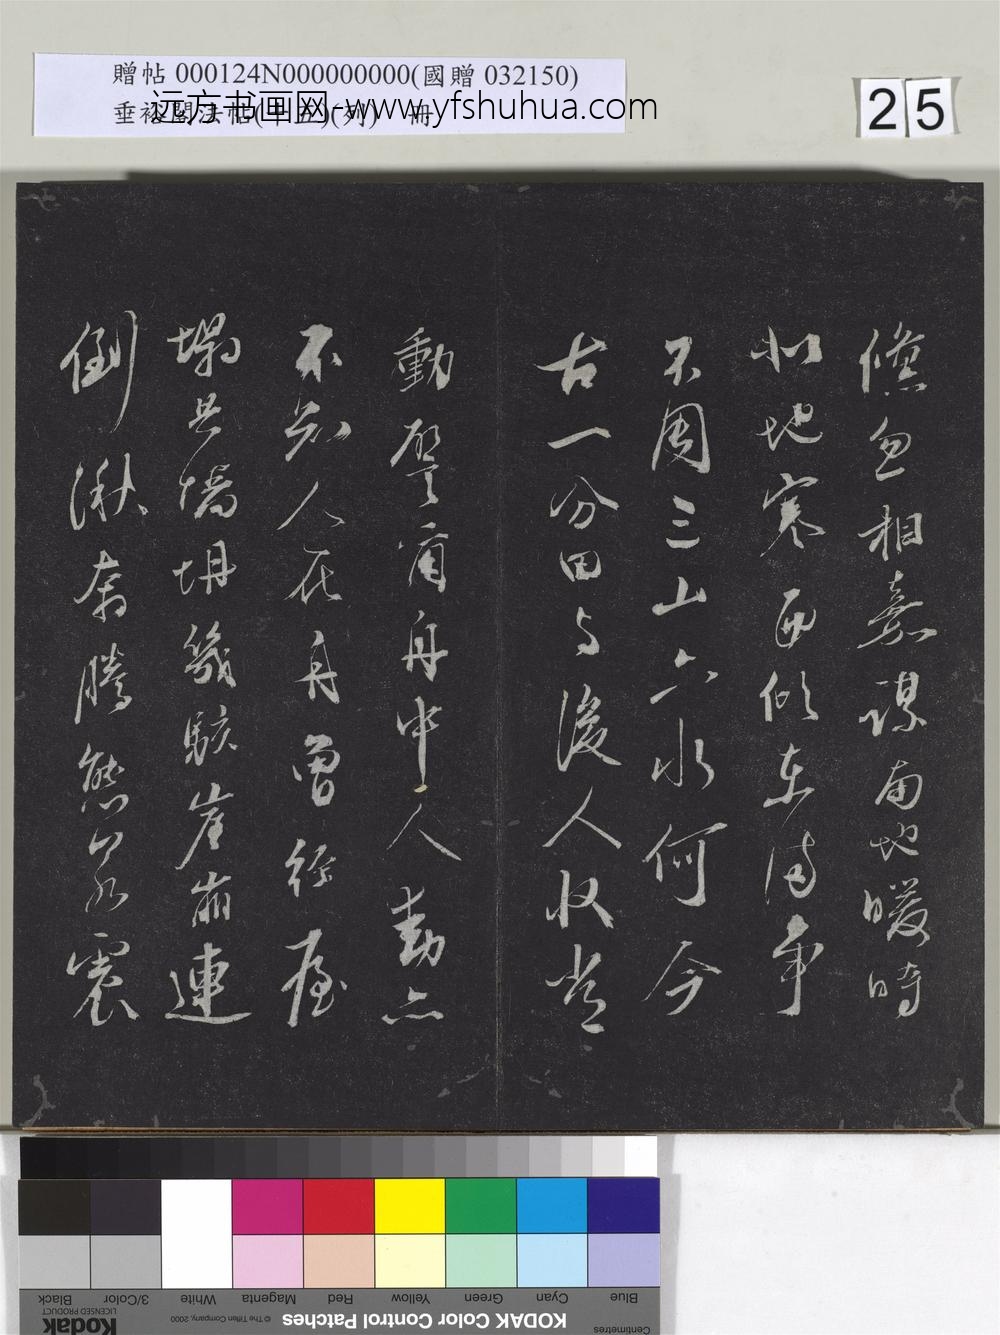 贈帖 000124N000000000(國贈 032150)
垂裕閣法帖(十五)(列) 冊
远方书画网-www.yfshuhua.com
25
儵忽相嘉謀南地暖時
北地寒西傾東滿爭
不周三山六水何今
古一分田与後人收
動舟中人動亦
不知人在舟曾經屋
塌墻坍幾駭崖崩連
倒湫奔騰態震
Blue Cyan Green Yellow Red Magenta White 3/Color Black
KODAK Color Control Patches
© The Tiffen Company, 2000
Kodak
LICENSED PRODUCT
Centimetres